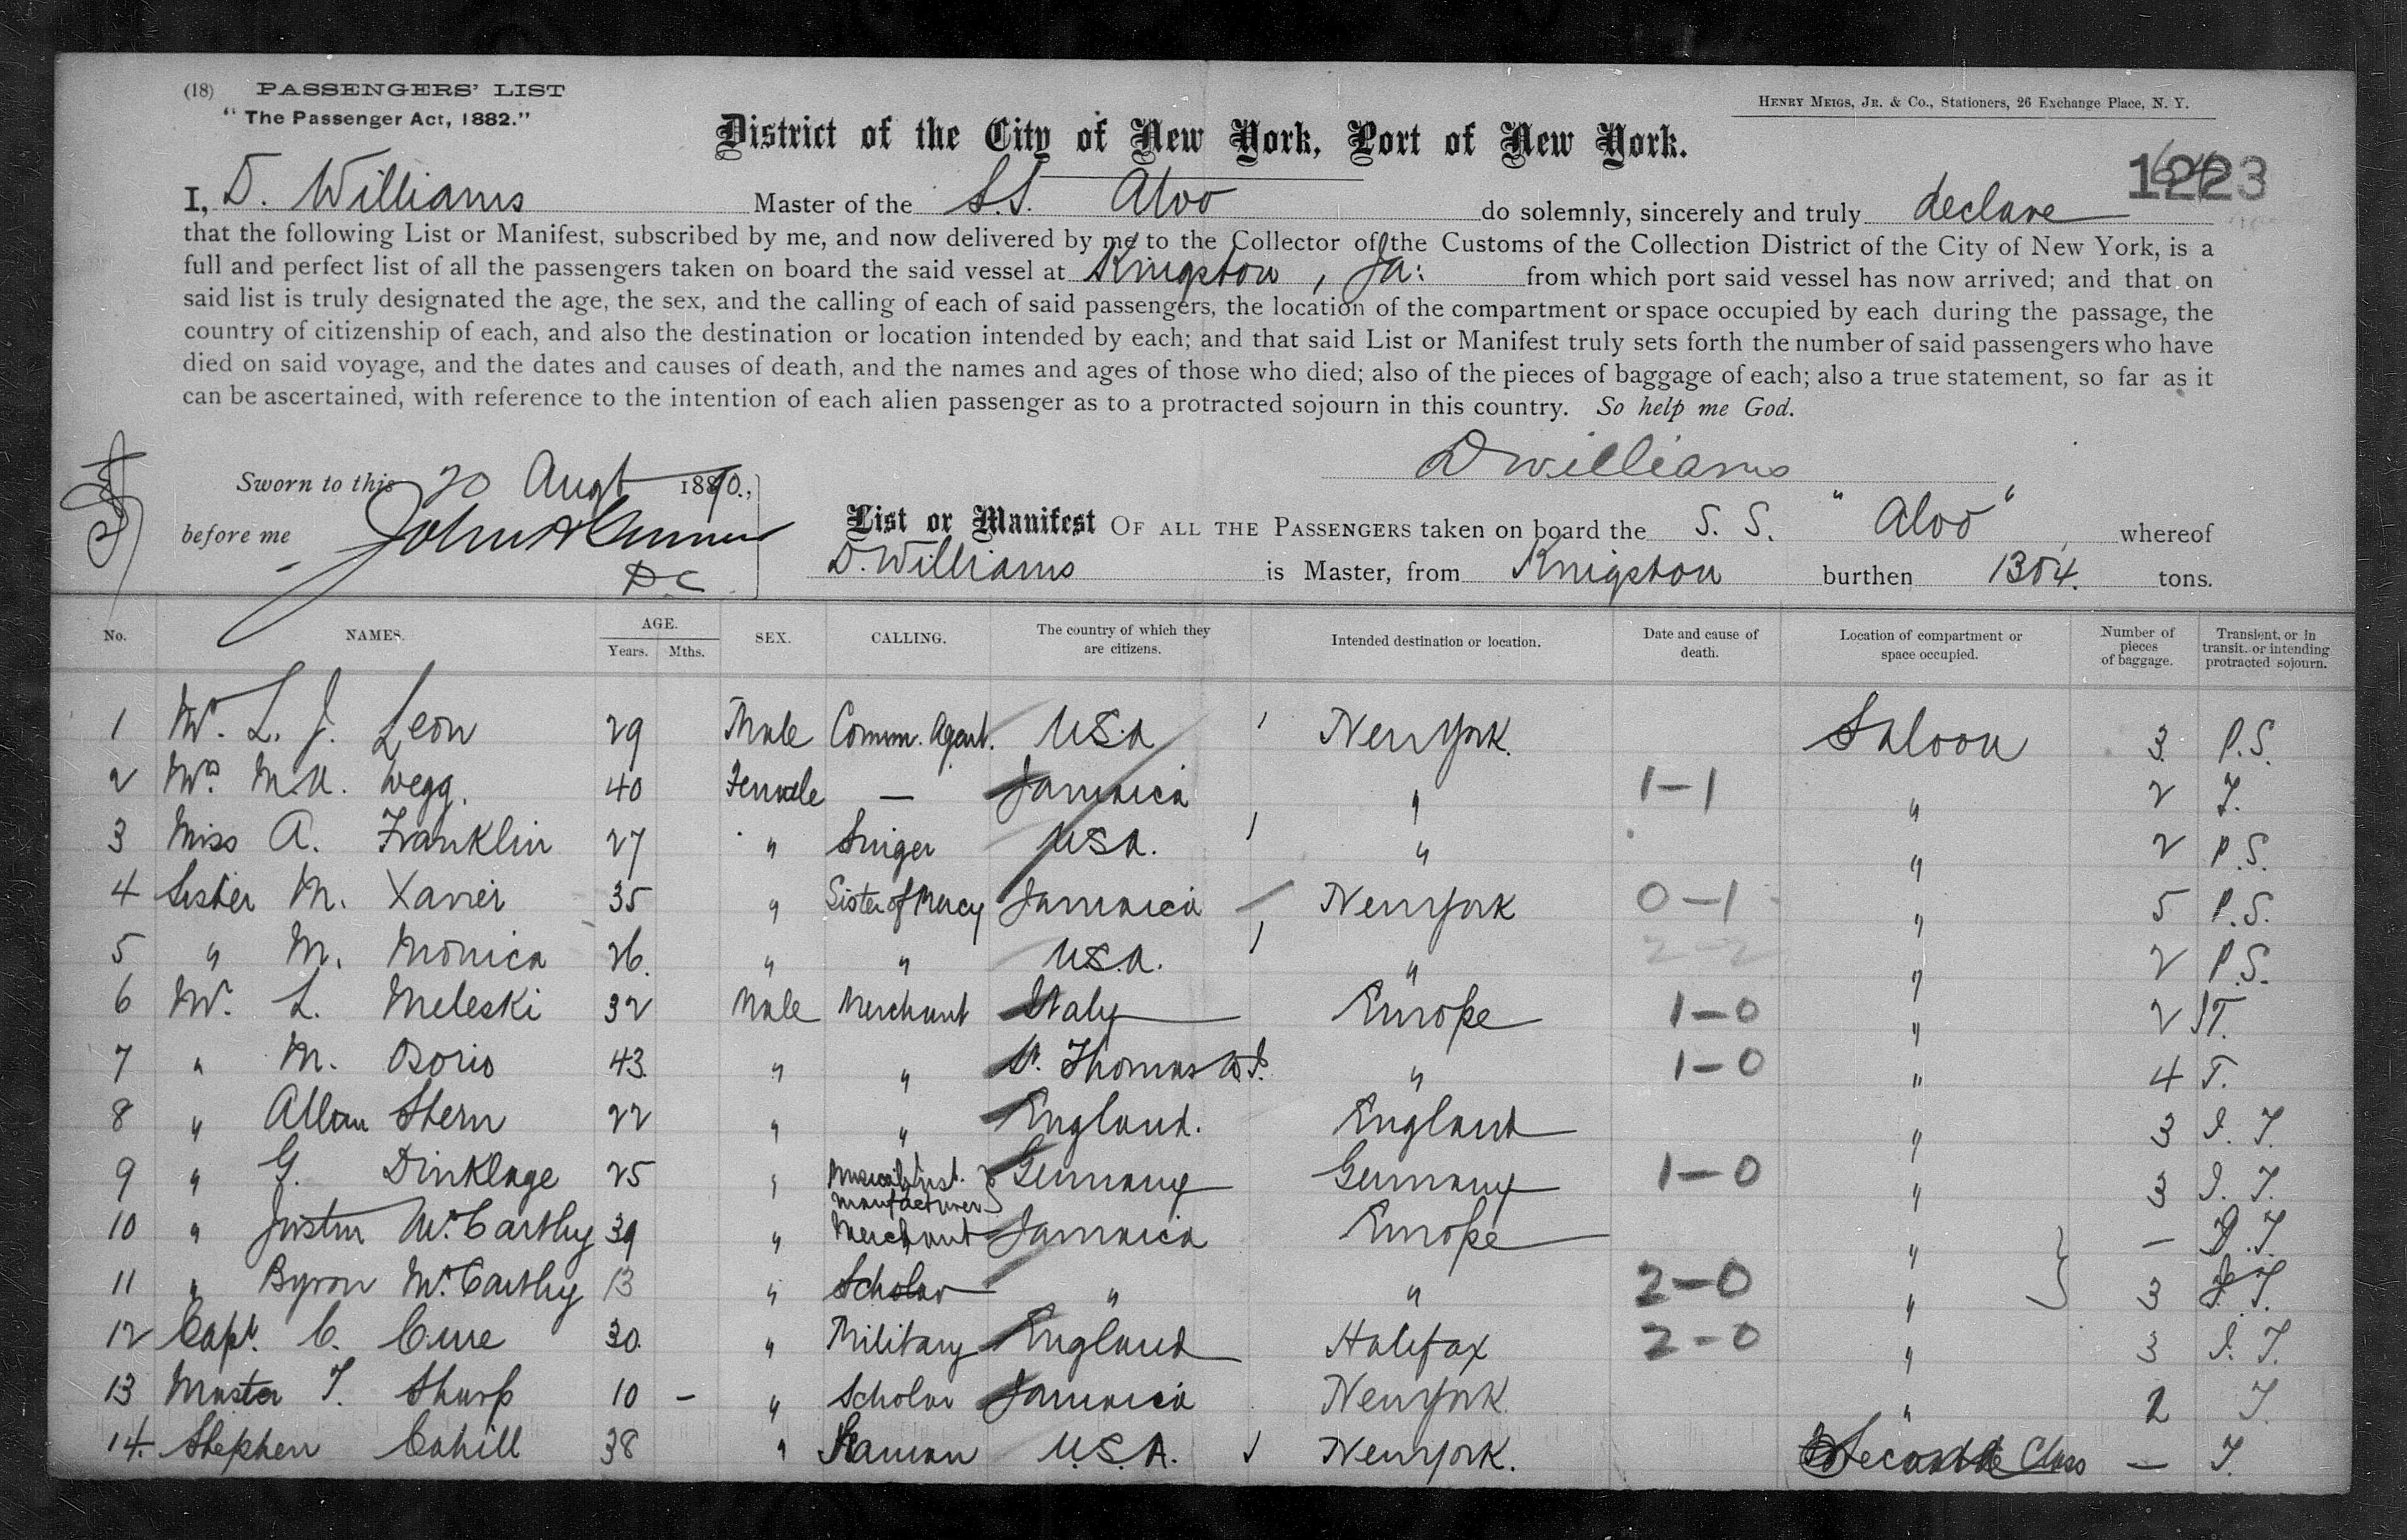 (18) PASSENGERS' LIST
"The Passenger Act, 1882."
HENRY MEIGS, JR. & CO., Stationers, 26 Exchange Place, N. Y.
District of the City of New York, Port of New York.
1223
I, D. Williams Master of the S.S. Alvo do solemnly, sincerely and truly declare
that the following List or Manifest, subscribed by me, and now delivered by me to the Collector of the Customs of the Collection District of the City of New York, is a
full and perfect list of all the passengers taken on board the said vessel at Kingston, Ja: from which port said vessel has now arrived; and that on
said list is truly designated the age, the sex, and the calling of each of said passengers, the location of the compartment or space occupied by each during the passage, the
country of citizenship of each, and also the destination or location intended by each; and that said List or Manifest truly sets forth the number of said passengers who have
died on said voyage, and the dates and causes of death, and the names and ages of those who died; also of the pieces of baggage of each; also a true statement, so far as it
can be ascertained, with reference to the intention of each alien passenger as to a protracted sojourn in this country. So help me God.
D Williams
Sworn to this 20 Augt 1890.,
before me John
D.C
List or Manifest OF ALL THE PASSENGERS taken on board the S. S. "Alvo" whereof
D. Williams is Master, from Kingston burthen 1354. tons.
No. NAMES. AGE. Years. Mths. SEX. CALLING. The country of which they are citizens. Intended destination or location. Date and cause of death. Location of compartment or space occupied. Number of pieces of baggage. Transient, or in transit, or intending protracted sojourn.
1 Mr. L. J. Leon 29 Male Comm. Agent. U.S.A New York. Saloon 3 P.S.
2 Mrs. M.A. Wegg. 40 Female — Jamaica " 1-1 " 2 T.
3 Miss A. Franklin 27 " Singer U.S.A. " " 2 P.S.
4 Sister M. Xavier 35 " Sister of Mercy Jamaica New York 0-1 " 5 P.S.
5 " M. Monica 26. " " U.S.A. " 2-2 " 2 P.S.
6 Mr. L. Meleski 32 Male Merchant Italy Europe 1-0 " 2 T.
7 " M. Osorio 43. " " St. Thomas W.I. " 1-0 " 4 T.
8 " Allan Stern 22 " " England. England " 3 I. T.
9 " G. Dinklage 25 " Musical Inst. manufacturer Germany Germany 1-0 " 3 I. T.
10 " Justin McCarthy 39 " Merchant Jamaica Europe " — I.T.
11 " Byron McCarthy 13 " Scholar " " 2-0 " 3 I.T.
12 Capt. C. Cure 30. " Military England Halifax 2-0 " 3 I. T.
13 Master T. Sharp 10 - " Scholar Jamaica New York " 2 T.
14. Stephen Cahill 38 " Seaman U.S.A. New York. Second Class — T.